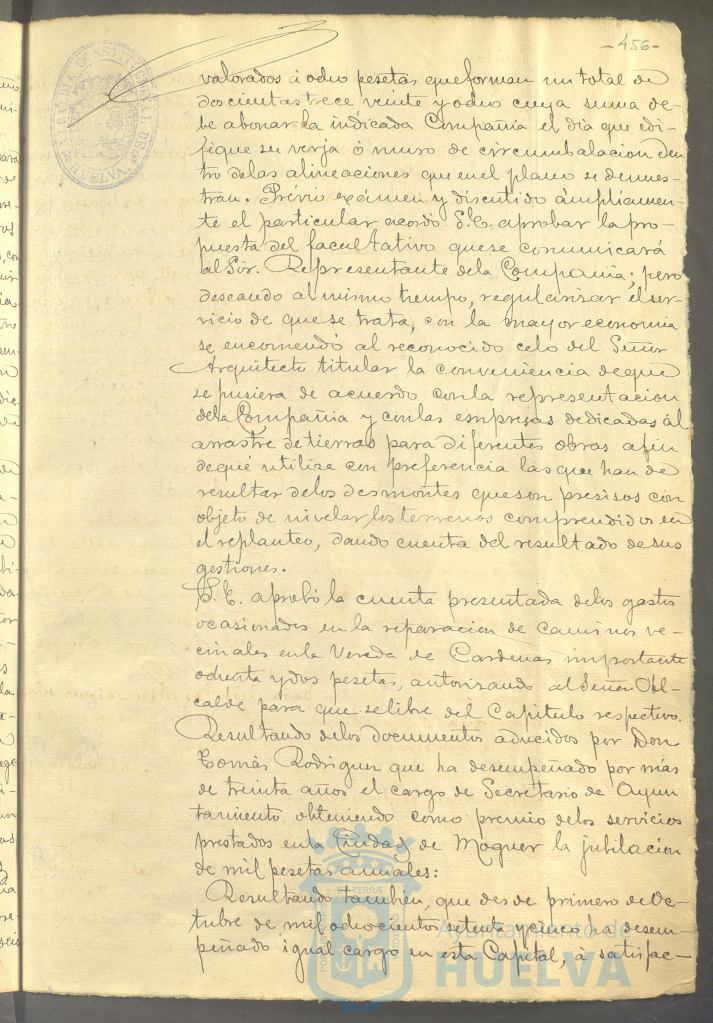 -456-
valorados á ocho pesetas que forman un total de
doscientas trece veinte y ocho cuya suma de-
be abonar la indicada Compañia el dia que edi-
fique su verja ó muro de circumbalacion den
tro de las alineaciones que en el plano se demues-
tran. Prévio exámen y discutido ámpliamen-
te el particular acordó S.E. aprobar la pro-
puesta del facultativo que se comunicará
al Sór. Representante de la Compañia; pero
deseando al mismo tiempo, regularizar el ser-
vicio de que se trata, con la mayor economia
se encomendó al reconocido celo del Señor
Arquitecto titular la conveniencia de que
se pusiera de acuerdo con la representacion
de la Compañia y con las empresas dedicadas al
arrastre de tierras para diferentes obras a fin
de qué utilize con preferencia las que han de
resultar de los desmontes que son presisos con
objeto de nivelar los terrenos comprendidos en
el replanteo, dando cuenta del resultado de sus
gestiones.
S. E. aprobó la cuenta presentada de los gastos
ocasionados en la reparacion de caminos ve-
cinales en la Vereda de Cardenas importante
ochenta y dos pesetas, autorizando al Señor Al-
calde para que se libre del Capitulo respectivo.
Resultando de los documentos aducidos por Don
Tomás Rodriguez que ha desempeñado por más
de treinta años el cargo de Secretario de Ayun
tamiento obteniendo como premio de los servicios
prestados en la Ciudad de Moguer la jubilacion
de mil pesetas anuales:
Resultando tambien, que desde primero de Oc-
tubre de mil ochocientos setenta y cinco ha desem-
peñado igual cargo en esta Capital, á satisfac-
Ayuntamiento de
HUELVA